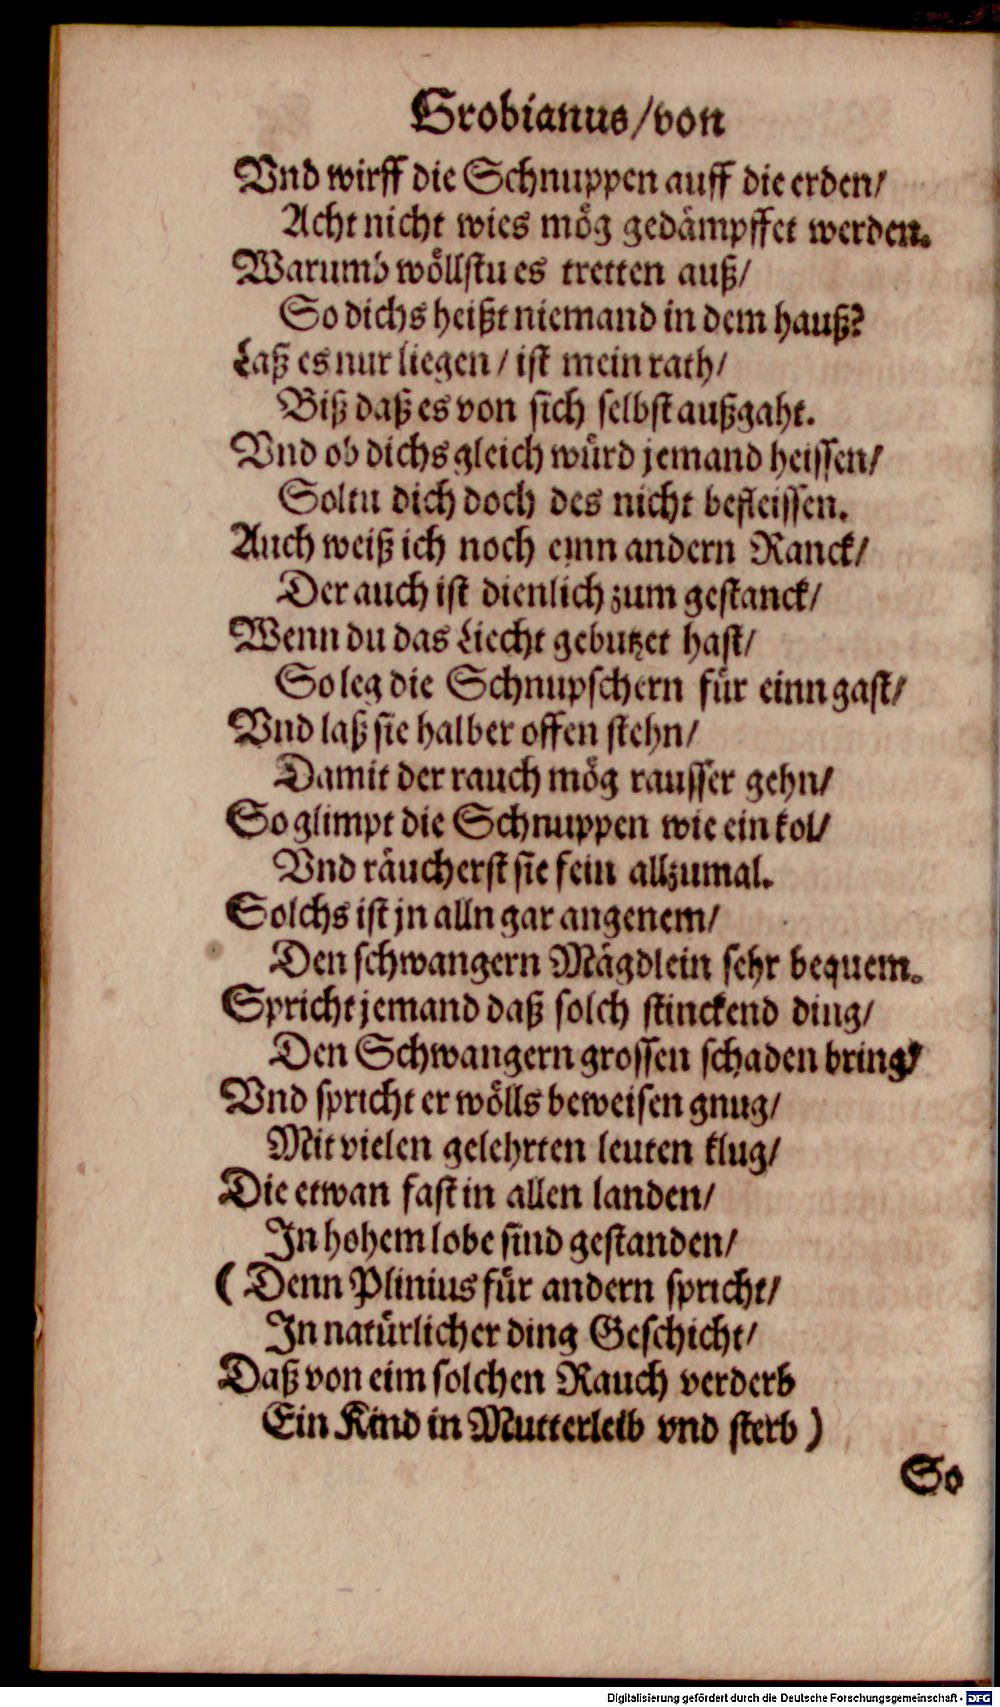 Grobianus/von
Vnd wirff die Schnuppen auff die erden/
Acht nicht wies mög gedämpffet werden.
Warumb wöllstu es tretten auß/
So dichs heißt niemand in dem hauß?
Laß es nur liegen / ist mein rath/
Biß daß es von sich selbst außgaht.
Vnd ob dichs gleich würd jemand heissen/
Soltu dich doch des nicht befleissen.
Auch weiß ich noch einn andern Ranck/
Der auch ist dienlich zum gestanck/
Wenn du das Liecht gebutzet hast/
So leg die Schnupschern für einn gast/
Vnd laß sie halber offen stehn/
Damit der rauch mög rausser gehn/
So glimpt die Schnuppen wie ein kol/
Vnd räucherst sie fein allzumal.
Solchs ist jn alln gar angenem/
Den schwangern Mägdlein sehr bequem.
Spricht jemand daß solch stinckend ding/
Den Schwangern grossen schaden bring/
Vnd spricht er wölls beweisen gnug/
Mit vielen gelehrten leuten klug/
Die etwan fast in allen landen/
In hohem lobe sind gestanden/
( Denn Plinius für andern spricht/
In natürlicher ding Geschicht/
Daß von eim solchen Rauch verderb
Ein Kind in Mutterleib vnd sterb )
So
Digitalisierung gefördert durch die Deutsche Forschungsgemeinschaft - DFG